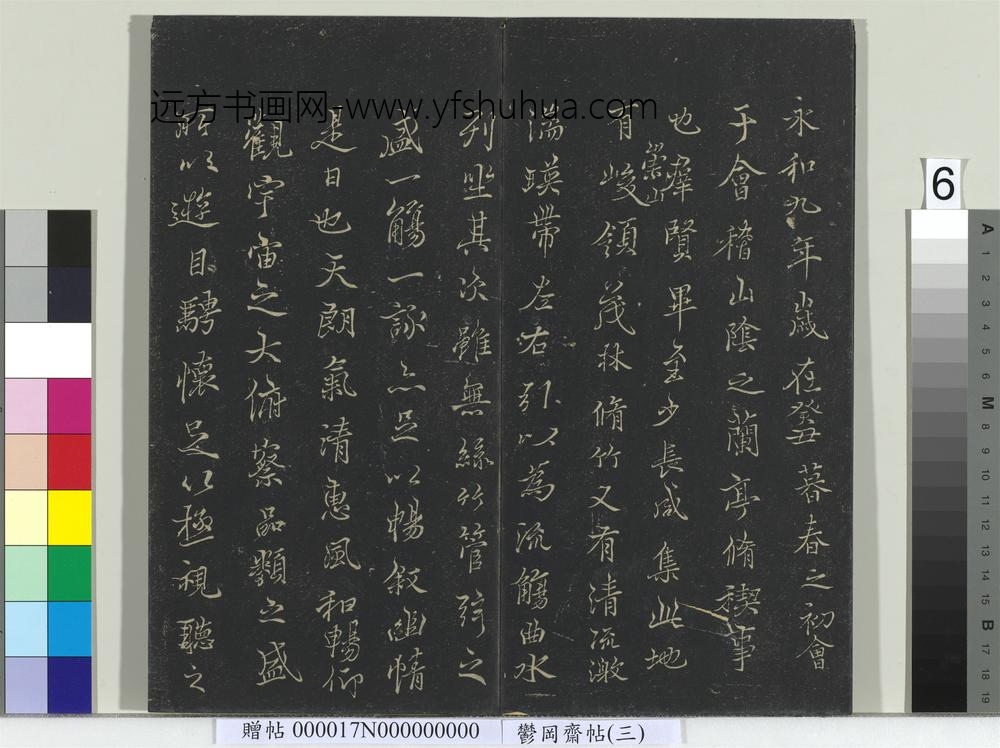 永和九年歲在癸丑暮春之初會
于會稽山陰之蘭亭脩稧事
也羣賢畢至少長咸集此地
有崇山峻領茂林脩竹又有清流激
湍暎帶左右引以為流觴曲水
列坐其次雖無絲竹管弦之
盛一觴一詠亦足以暢敘幽情
是日也天朗氣清惠風和暢仰
觀宇宙之大俯察品類之盛
所以遊目騁懷足以極視聽之
远方书画网-www.yfshuhua.com
6
A 1 2 3 4 5 6 M 8 9 10 11 12 13 14 15 B 17 18 19
贈帖 000017N000000000
鬱岡齋帖(三)